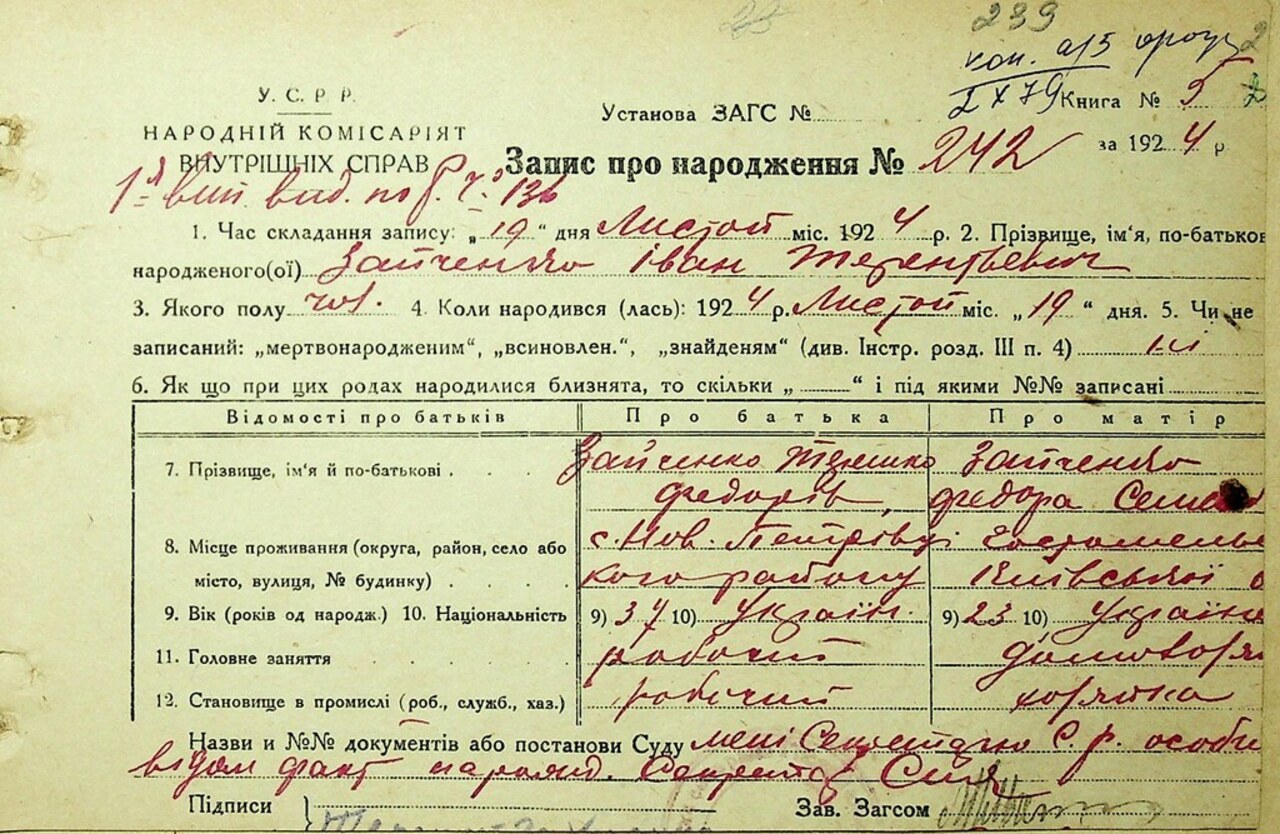 239
У. С. Р. Р.
НАРОДНІЙ КОМІСАРІЯТ
ВНУТРІШНІХ СПРАВ
Установа ЗАГС №
Книга № 5
за 1924 р.
Запис про народження № 242
1. Час складання запису: „19“ дня Листоп міс. 1924 р. 2. Прізвище, ім'я, по-батькові
народженого(ої) Зайченко Іван Терентьевич
3. Якого полу чол. 4. Коли народився (лась): 1924 р. Листоп міс. „19“ дня. 5. Чи не
записаний: „мертвонародженим“, „всиновлен.“, „знайденям“ (див. Інстр. розд. III п. 4) ні
6. Як що при цих родах народилися близнята, то скільки „ “ і під якими №№ записані
Відомості про батьків Про батька Про матір
7. Прізвище, ім'я й по-батькові Зайченко Терешко Зайченко
Федорів, Федора Сем
8. Місце проживання (округа, район, село або с. Нов. Петрівці Гостомельс
місто, вулиця, № будинку) кого району Київської о
9. Вік (років од народж.) 10. Національність 9) 37 10) Україн. 9) 23 10) Україн
11. Головне заняття робочий домогор
12. Становище в промислі (роб., служб., хаз.) робочий
Назви и №№ документів або постанови Суду мені Секретарю С. р. особи
відом факт народж. Секретар
Підписи Зав. Загсом